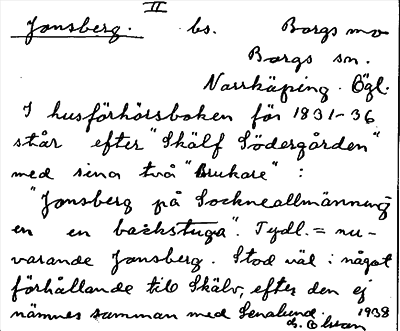 II
Jonsberg. bs. Borgs mo
Borgs sn.
Norrköping. Ögl.
I husförhörsboken för 1831-36
står efter "Skälf Södergården"
med sina två "Brukare" :
"Jonsberg på Sockneallmänning
en en backstuga". Tydl. = nu-
varande Jonsberg. Stod väl i något
förhållande till Skälv, efter den ej
nämnes samman med 1938
Olsson